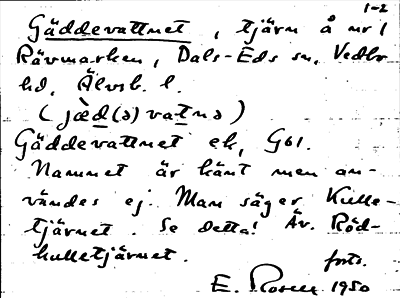 1-2
Gäddevattnet, tjärn å nr 1
Rävmarken, Dals-Eds sn, Vedbo
hd, Älvsb. l.
(jæ̀d(ə)vatnə)
Gäddevattnet ek, G61.
Namnet är känt men an-
vändes ej. Man säger Kulle-
tjärnet. Se detta! Äv. Röd-
kulletjärnet.
forts.
E. Rosell 1950